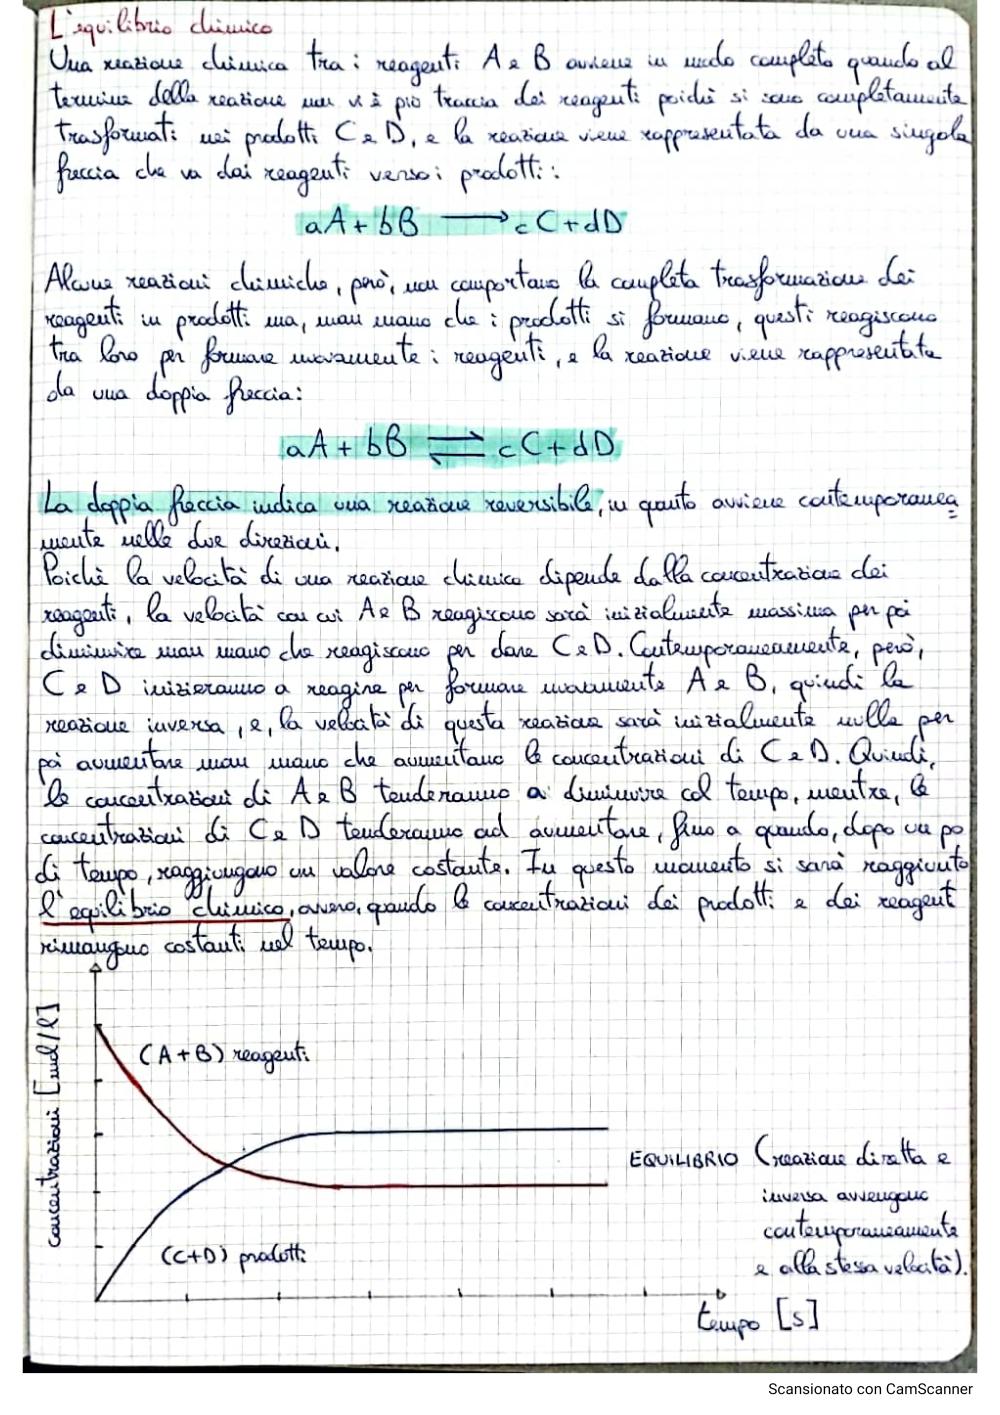 L'equilibrio chimico
Una reazione chimica tra i reagenti A e B avviene in modo completo quando al
termine della reazione non vi è più traccia dei reagenti poichè si sono completamente
trasformati nei prodotti C e D, e la reazione viene rappresentata da una singola
freccia che va dai reagenti verso i prodotti:
aA + bB ⟶ cC + dD
Alcune reazioni chimiche, però, non comportano la completa trasformazione dei
reagenti in prodotti ma, man mano che i prodotti si formano, questi reagiscono
tra loro per formare nuovamente i reagenti, e la reazione viene rappresentata
da una doppia freccia:
aA + bB ⇌ cC + dD
La doppia freccia indica una reazione reversibile, in quanto avviene contemporanea
mente nelle due direzioni.
Poichè la velocità di una reazione chimica dipende dalla concentrazione dei
reagenti, la velocità con cui A e B reagiscono sarà inizialmente massima per poi
diminuire man mano che reagiscono per dare C e D. Contemporaneamente, però,
C e D inizieranno a reagire per formare nuovamente A e B, quindi la
reazione inversa, e, la velocità di questa reazione sarà inizialmente nulla per
poi aumentare man mano che aumentano le concentrazioni di C e D. Quindi,
le concentrazioni di A e B tenderanno a diminuire col tempo, mentre, le
concentrazioni di C e D tenderanno ad aumentare, fino a quando, dopo un po
di tempo, raggiungono un valore costante. In questo momento si sarà raggiunto
l'equilibrio chimico, ovvero, quando le concentrazioni dei prodotti e dei reagent
rimangono costanti nel tempo.
concentrazioni [mol/l]
(A+B) reagenti
EQUILIBRIO (reazione diretta e
inversa avvengono
contemporaneamente
e alla stessa velocità).
(C+D) prodotti
tempo [s]
Scansionato con CamScanner